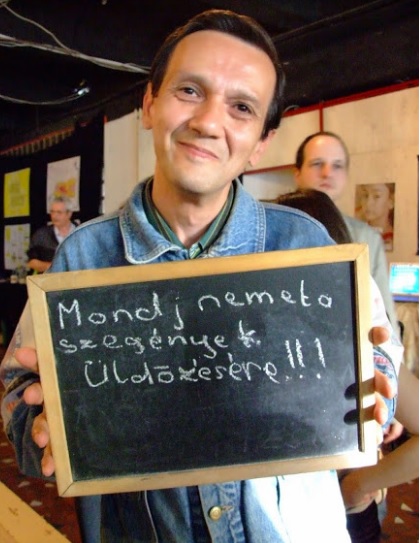 Mondj nemeta
szegények
üldözésére!!!